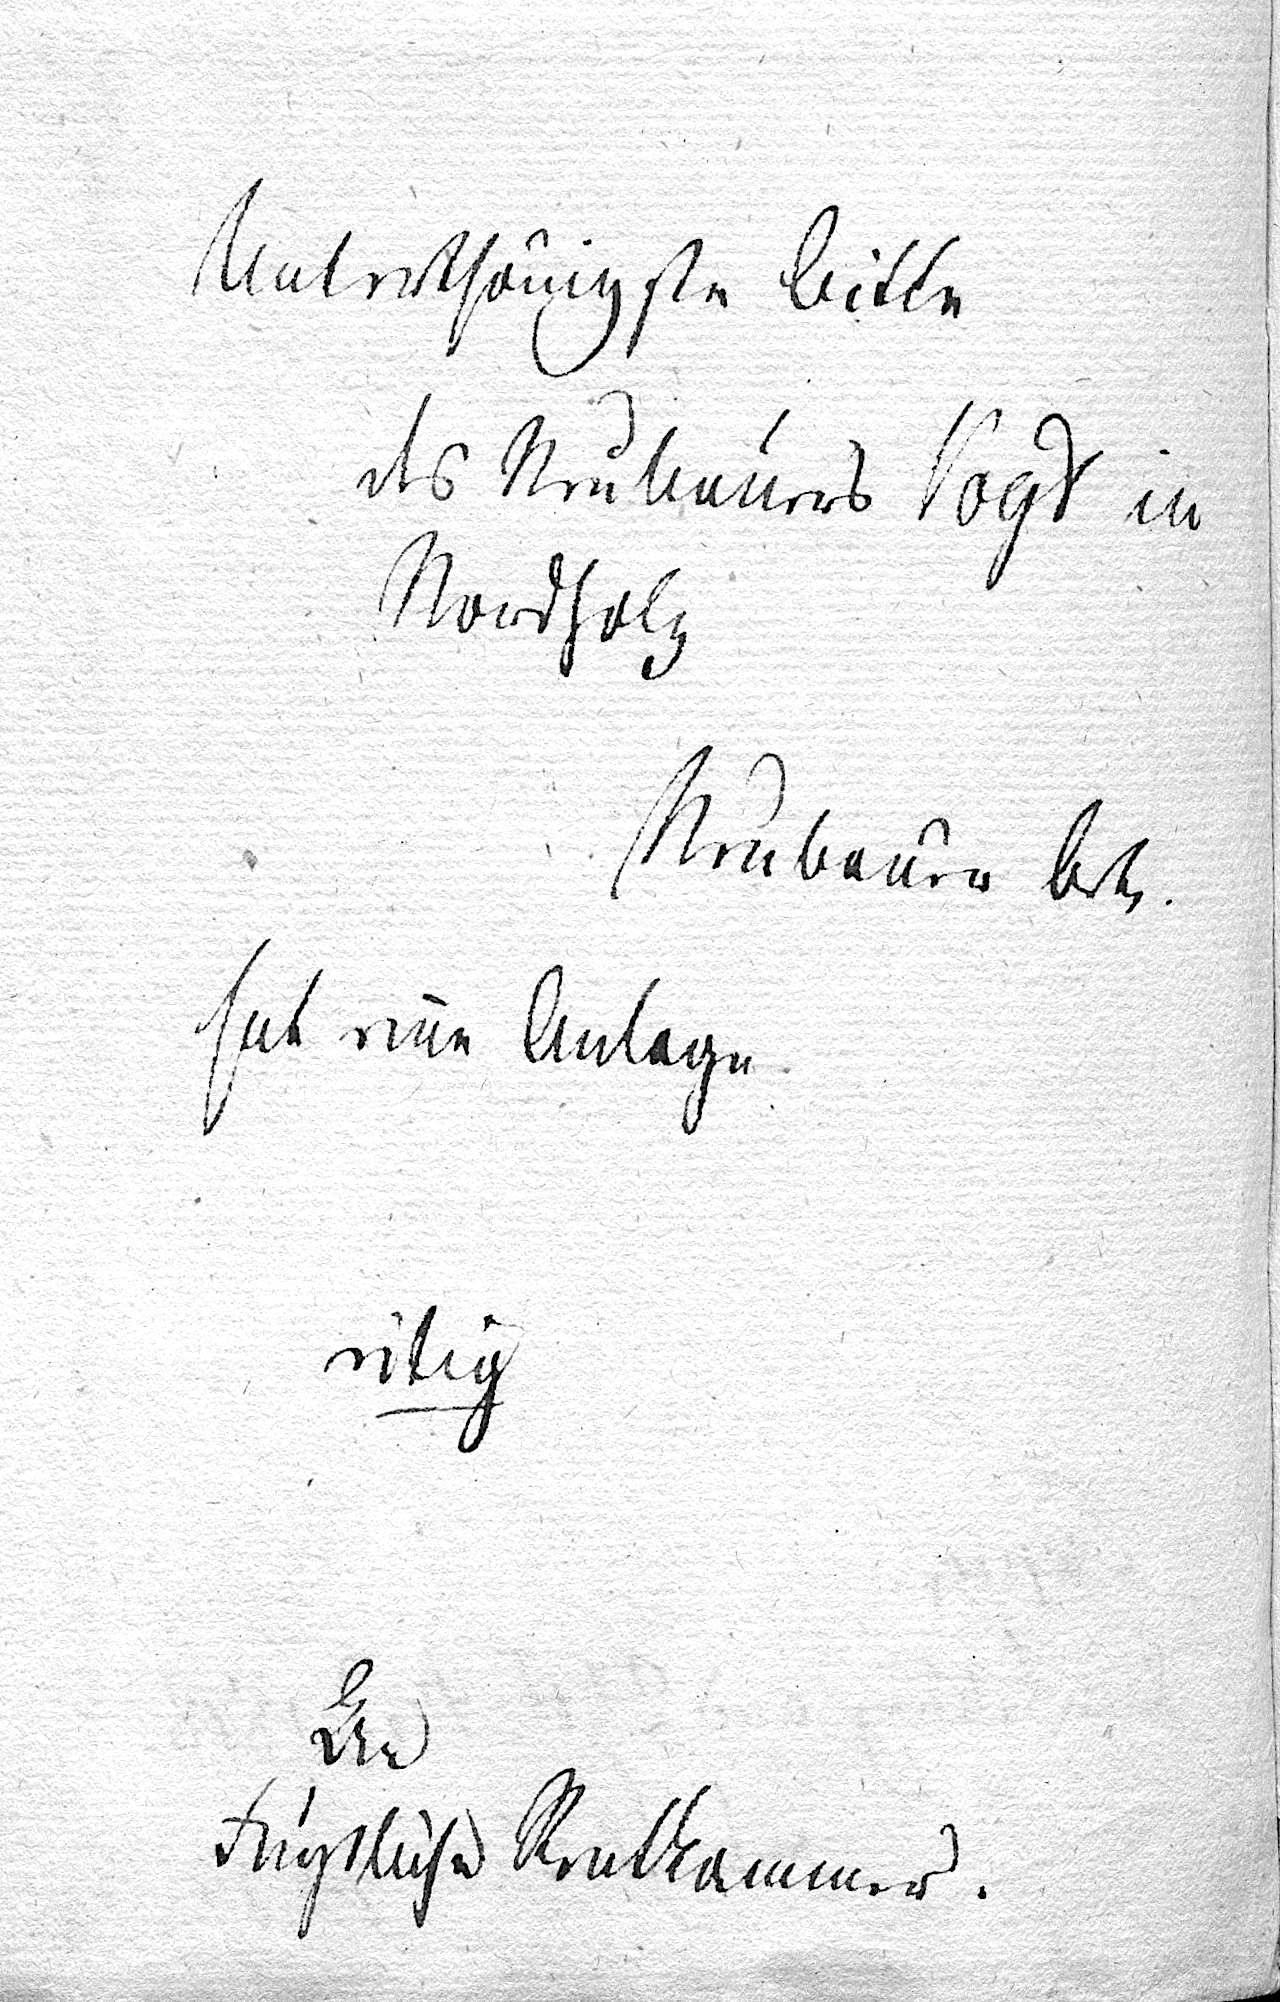 Unterthänigste Bitte
des Neubauers Vogt in
Nordholz
Neubauer betr.
hat eine Anlage
eilig
An
Fürstliche Rentkammer.